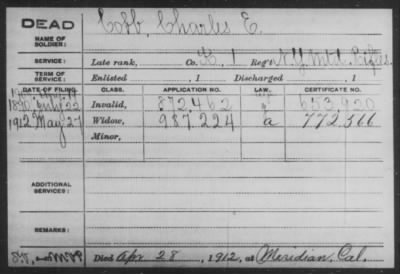 DEAD
NAME OF SOLDIER: Cobb, Charles E.
SERVICE: Late rank, Co. K. 1 Reg't N.Y. Mtd. Rifles
TERM OF SERVICE: Enlisted , 1 Discharged , 1
DATE OF FILING. CLASS. APPLICATION NO. LAW. CERTIFICATE NO.
1890 July 22 Invalid, 872.462 653.920
1912 May 27 Widow, 987.224 a 772.566
Minor,
ADDITIONAL SERVICES:
REMARKS:
Died Apr. 28, 1912, at Meridian, Cal.